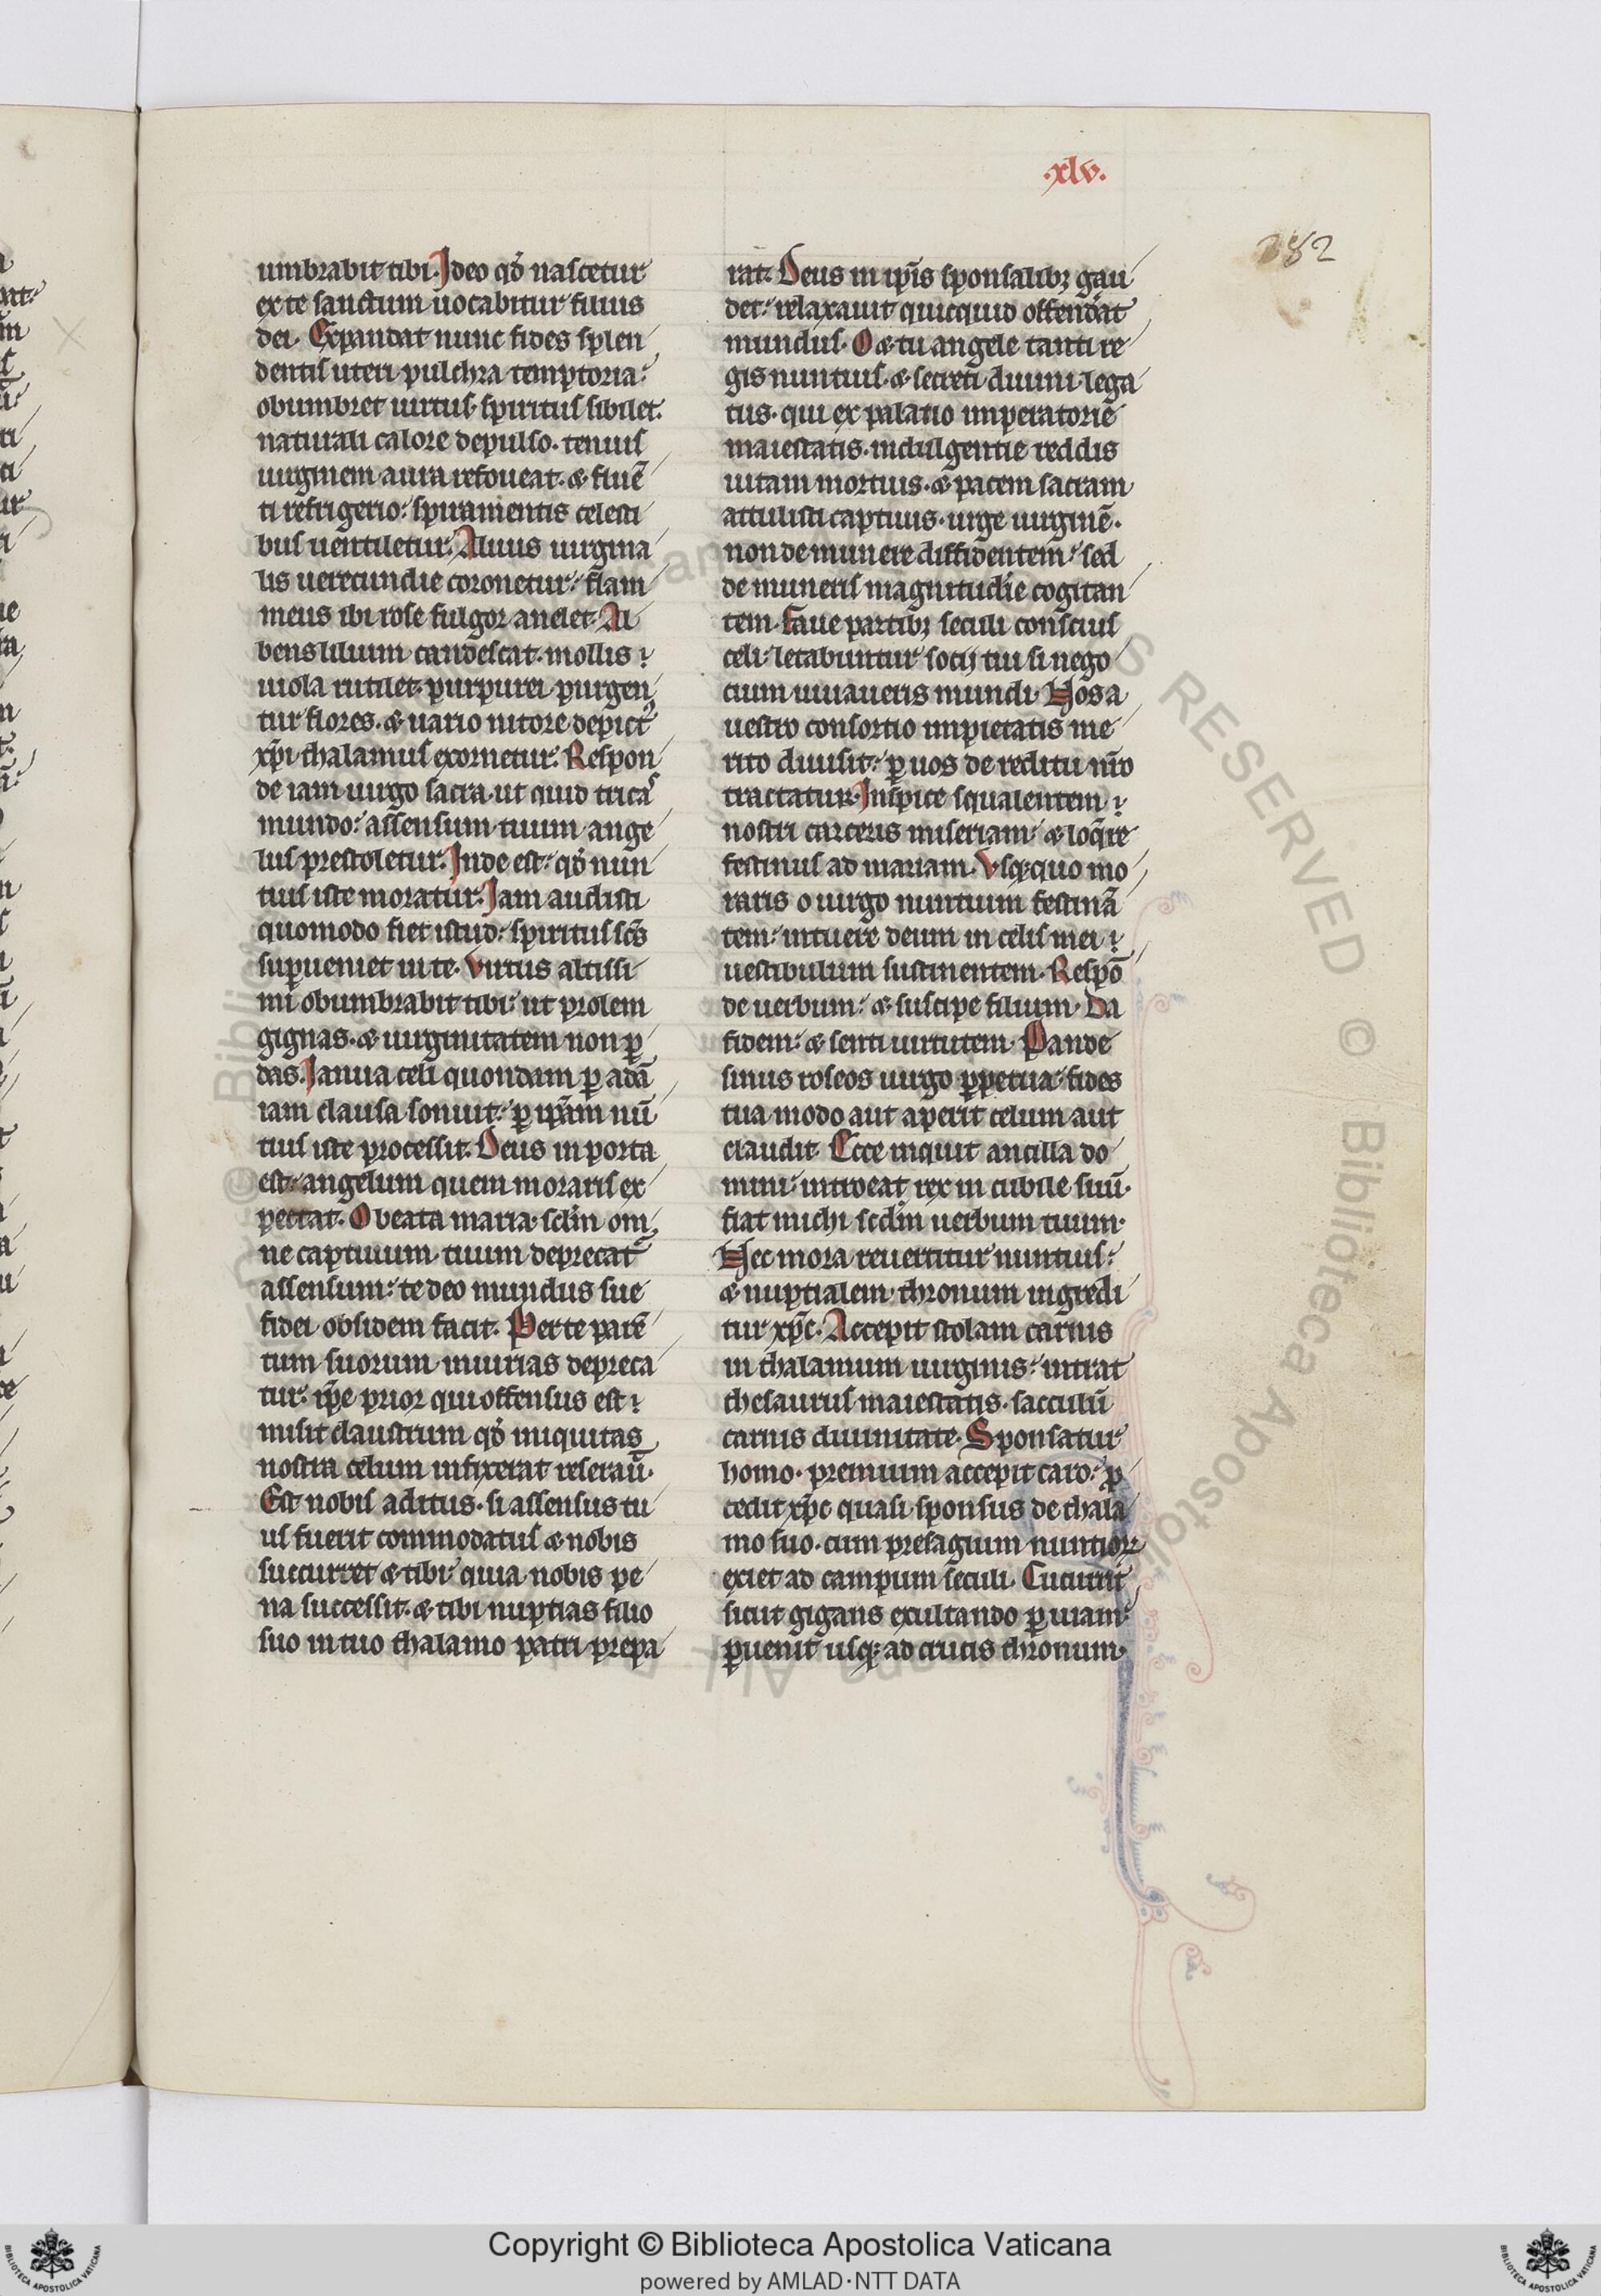 .xlv.
182
umbrabit tibi. Ideo qđ nascetur
ex te sanctum uocabitur filius
dei. Expandat nunc fides splen
dentis uteri pulchra temptoria:
obumbret uirtus spiritus sibilet.
naturali calore depulso. tenuis
uirginem aura refoueat. & fluē
ti refrigerio: spiramentis celesti
bus uentiletur. Aluus uirgina
lis uerecundie coronetur: flam
meus ibi rose fulgor anelet. Al
bens lilium candescat. mollis
uiola rutilet. purpurei purgen
tur flores. & uario nitore depict᷒
xp̄i thalamus exornetur. Respon
de iam uirgo sacra. ut quid tricas
mundo: assensum tuum ange
lus prestoletur. Inde est: qđ nun
tius iste moratur. Iam audisti
quomodo fiet istud: spiritus sc̄s
supueniet in te. Virtus altissi
mi obumbrabit tibi: ut prolem
gignas. & uirginitatem non ꝑ
das. Ianua celi quondam ꝑ adā
iam clausa sonuit: ꝑ ip̄am nū
tius iste processit. Deus in porta
est: angelum quem moraris ex
pectat. O beata maria. sclm̄ om
ne captiuum tuum deprecat᷑
assensum: te deo mundus sue
fidei obsidem facit. Per te parē
tum suorum iniurias depreca
tur: ip̄e prior qui offensus est
misit claustrum qđ iniquitas
nostra celum infixerat reseraū.
Est nobis aditus. si assensus tu
us fuerit commodatus & nobis
succurret & tibi: quia nobis pe
na successit. & tibi nuptias filio
suo in tuo thalamo patri prepa
rat. Deus in ip̄is sponsalibꝫ gau
det: relaxauit quicquid offenderat
mundus. O & tu angele tanti re
gis nuntius. & secreti diuini lega
tus. qui ex palatio imperatorie
maiestatis. indulgentie reddis
uitam mortuis. & pacem sacram
attulisti captiuis. urge uirginē.
non de munere diffidentem: sed
de muneris magnitudīe cogitan
tem. Faue partibꝫ seculi conscius
celi: letabuntur socij tui si nego
cium iuuaueris mundi. Hos a
uestro consortio impietatis me
rito diuisit: ꝑ uos de reditu nr̄o
tractatur. Inspice squalentem
nostri carceris miseriam: & loq̄re
festinus ad mariam. Vsq̨quo mo
raris o uirgo nuntium festinā
tem: intuere deum in celis mei
uestibulum sustinentem. Respō
de uerbum: & suscipe filium. Da
fidem: & senti uirtutem. Pande
sinus roseos uirgo ꝑpetua: fides
tua modo aut aperit celum aut
claudit. Ecce inquit ancilla do
mini: introeat rex in cubile suū.
fiat michi scdm̄ uerbum tuum.
Hec mora reuertitur nuntius:
& nuptialem thronum ingredi
tur xp̄c. Accepit stolam carnis
in thalamum uirginis: intrat
thesaurus maiestatis. sacculū
carnis diuinitate. Sponsatur
homo. premium accepit caro: ꝓ
cedit xp̄c quasi sponsus de thala
mo suo. cum presagium nuntioꝝ
exiet ad campum seculi. Cucurrit
sicut gigans exultando ꝑ uiam:
ꝑuenit usq; ad crucis thronum.
Copyright © Biblioteca Apostolica Vaticana
powered by AMLAD·NTT DATA